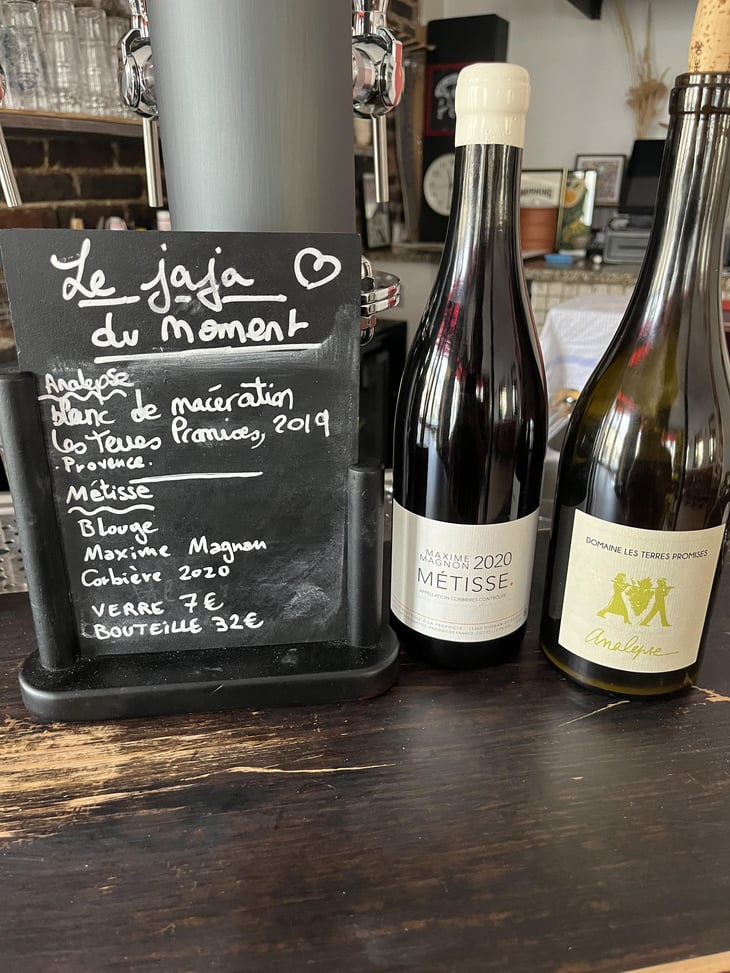 Le jaja
du moment
Analepse
blanc de macération
Les Terres Promises, 2019
. Provence .
Métisse
Blouge
Maxime Magnan
Corbière 2020
VERRE 7€
BOUTEILLE 32€
MAXIME
MAGNON 2020
MÉTISSE.
APPELLATION CORBIÈRES CONTRÔLÉE
DOMAINE LES TERRES PROMISES
Analepse